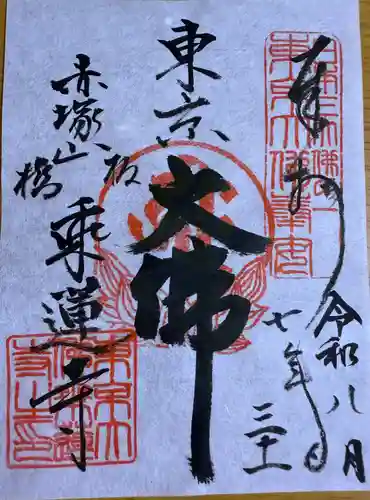 奉拝
令和七年八月三十一日
東京
大佛
板橋
赤塚山
乗蓮寺